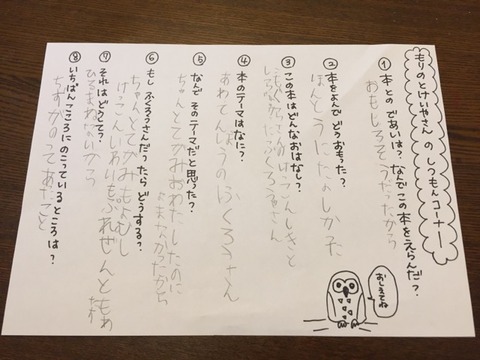 もりのとけいやさん の しつもんコーナー
① 本との であいは？なんでこの本をえらんだ？
おもしろそうだったから
② 本をよんで どうおもった？
ほんとうにたのしかった
③ この本はどんなおはなし？
けっこんしきと
ふくろうさん
④ 本のテーマはなに？
あわてんぼうのふくろうさん
⑤ なんで そのテーマだと思った？
ちゃんとてがみおわたしたのに
よまなかったから
⑥ もし ふくろうさんだったら どうする？
ちゃんとてがみもよむし
けっこんいわいもぷれぜんともも
⑦ それは どうして？
⑧ いちばんこころにのこっているところは？
ちずが
おしえてね